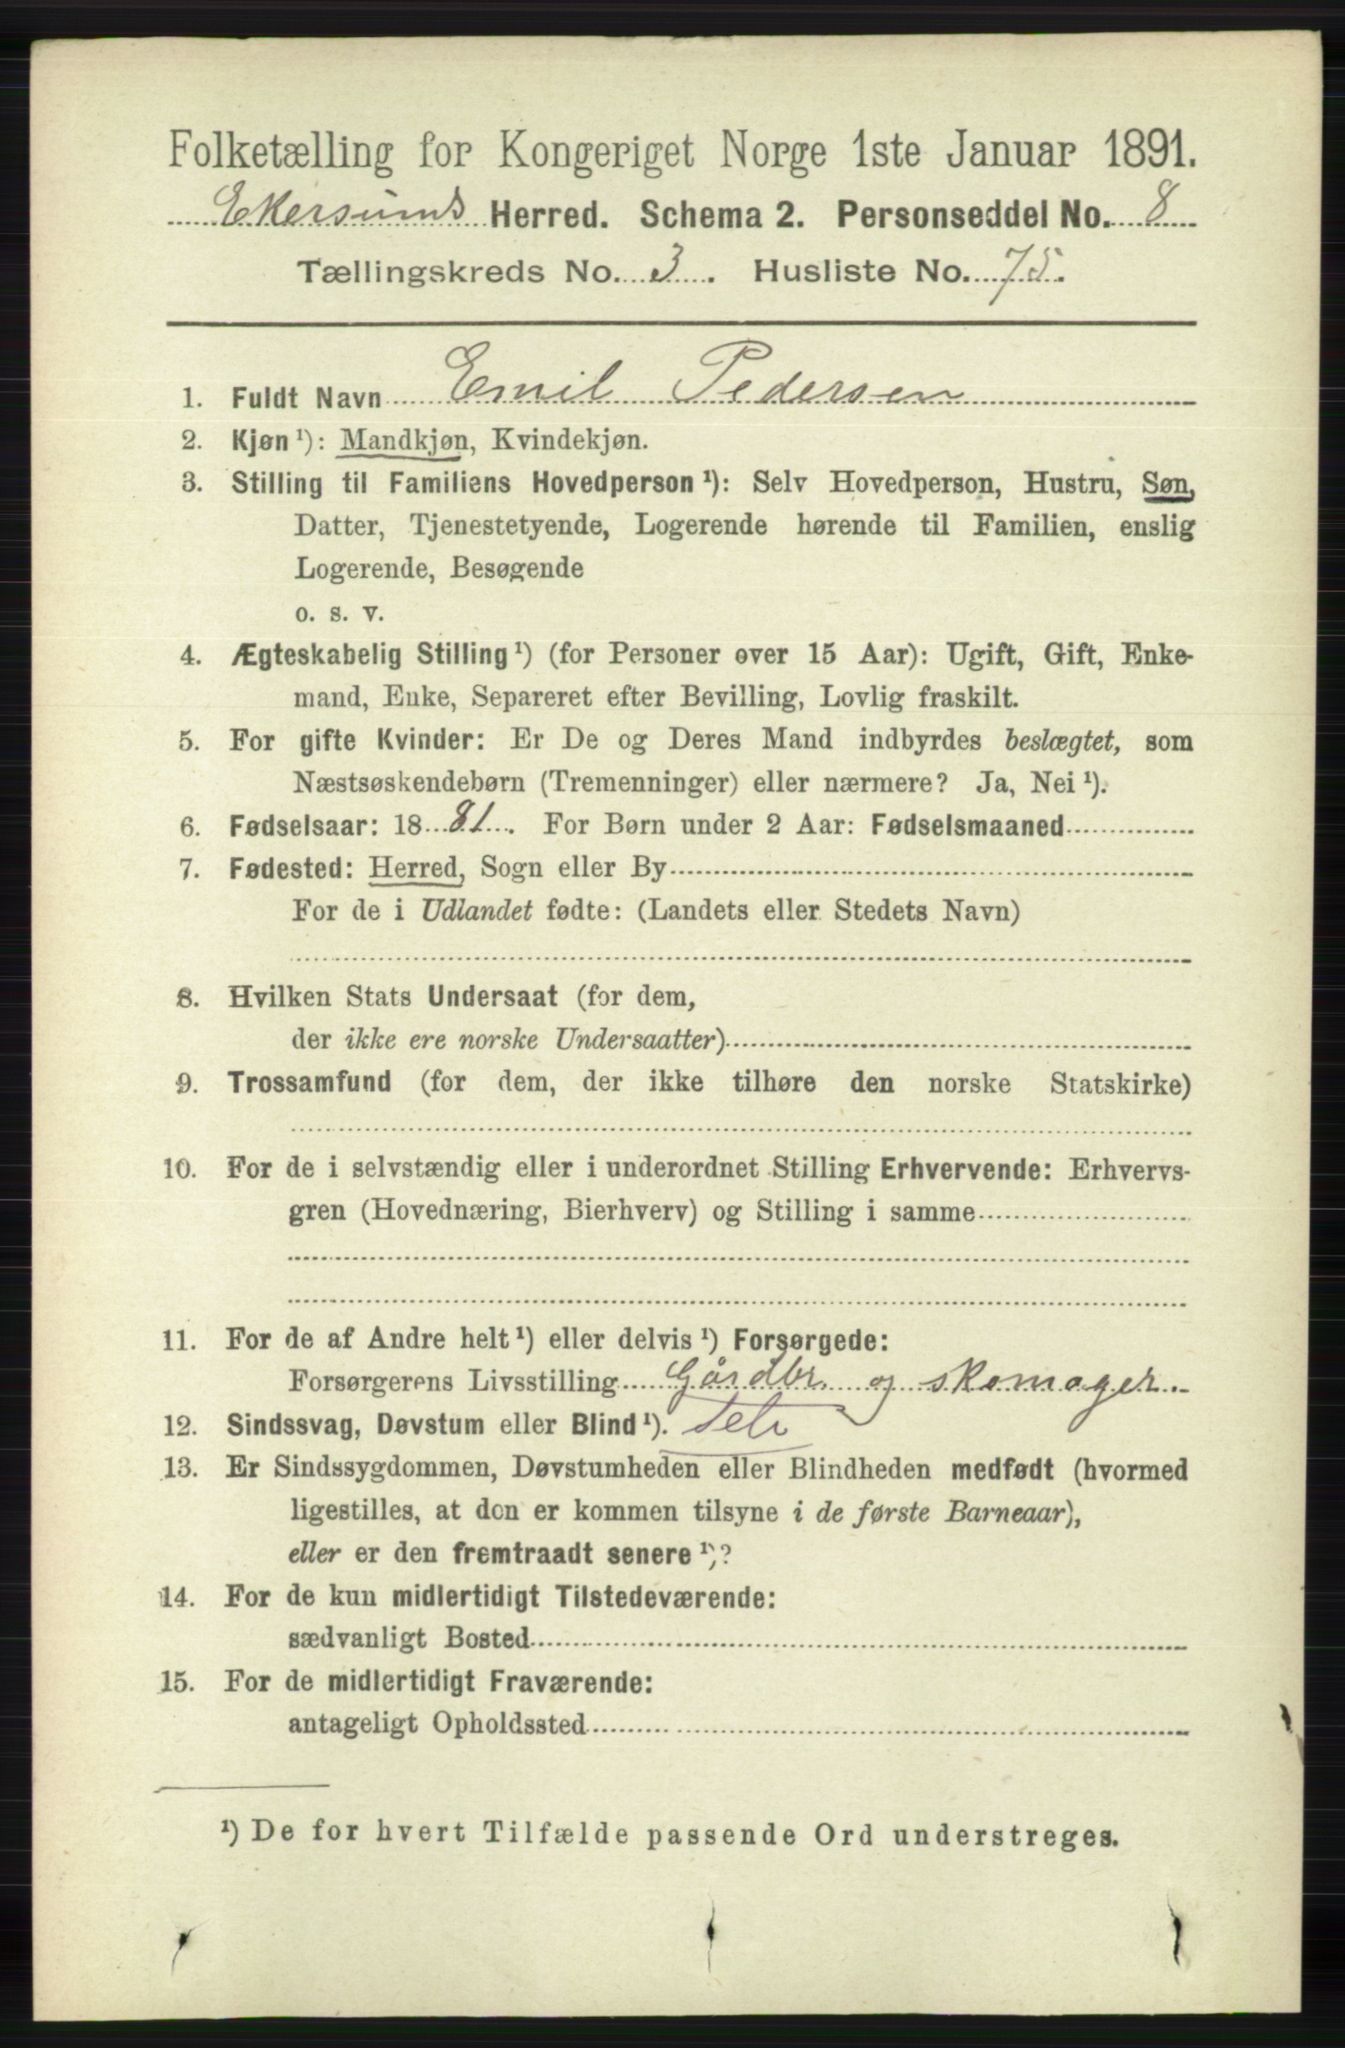 Folketælling for Kongeriget Norge 1ste Januar 1891.
Ekersunds Herred. Schema 2. Personseddel No. 8
Tællingskreds No. 3. Husliste No. 75.
1. Fuldt Navn Emil Pedersen
2. Kjøn ¹): Mandkjøn, Kvindekjøn.
3. Stilling til Familiens Hovedperson ¹): Selv Hovedperson, Hustru, Søn,
Datter, Tjenestetyende, Logerende hørende til Familien, enslig
Logerende, Besøgende
o. s. v.
4. Ægteskabelig Stilling ¹) (for Personer over 15 Aar): Ugift, Gift, Enke-
mand, Enke, Separeret efter Bevilling, Lovlig fraskilt.
5. For gifte Kvinder: Er De og Deres Mand indbyrdes beslægtet, som
Næstsøskendebørn (Tremenninger) eller nærmere? Ja, Nei ¹).
6. Fødselsaar: 1881. For Børn under 2 Aar: Fødselsmaaned
7. Fødested: Herred, Sogn eller By
For de i Udlandet fødte: (Landets eller Stedets Navn)
8. Hvilken Stats Undersaat (for dem,
der ikke ere norske Undersaatter)
9. Trossamfund (for dem, der ikke tilhøre den norske Statskirke)
10. For de i selvstændig eller i underordnet Stilling Erhvervende: Erhvervs-
gren (Hovednæring, Bierhverv) og Stilling i samme
11. For de af Andre helt ¹) eller delvis ¹) Forsørgede:
Forsørgerens Livsstilling Gårdbr. og skomager.
12. Sindssvag, Døvstum eller Blind ¹).
13. Er Sindssygdommen, Døvstumheden eller Blindheden medfødt (hvormed
ligestilles, at den er kommen tilsyne i de første Barneaar),
eller er den fremtraadt senere ¹)?
14. For de kun midlertidigt Tilstedeværende:
sædvanligt Bosted
15. For de midlertidigt Fraværende:
antageligt Opholdssted
¹) De for hvert Tilfælde passende Ord understreges.